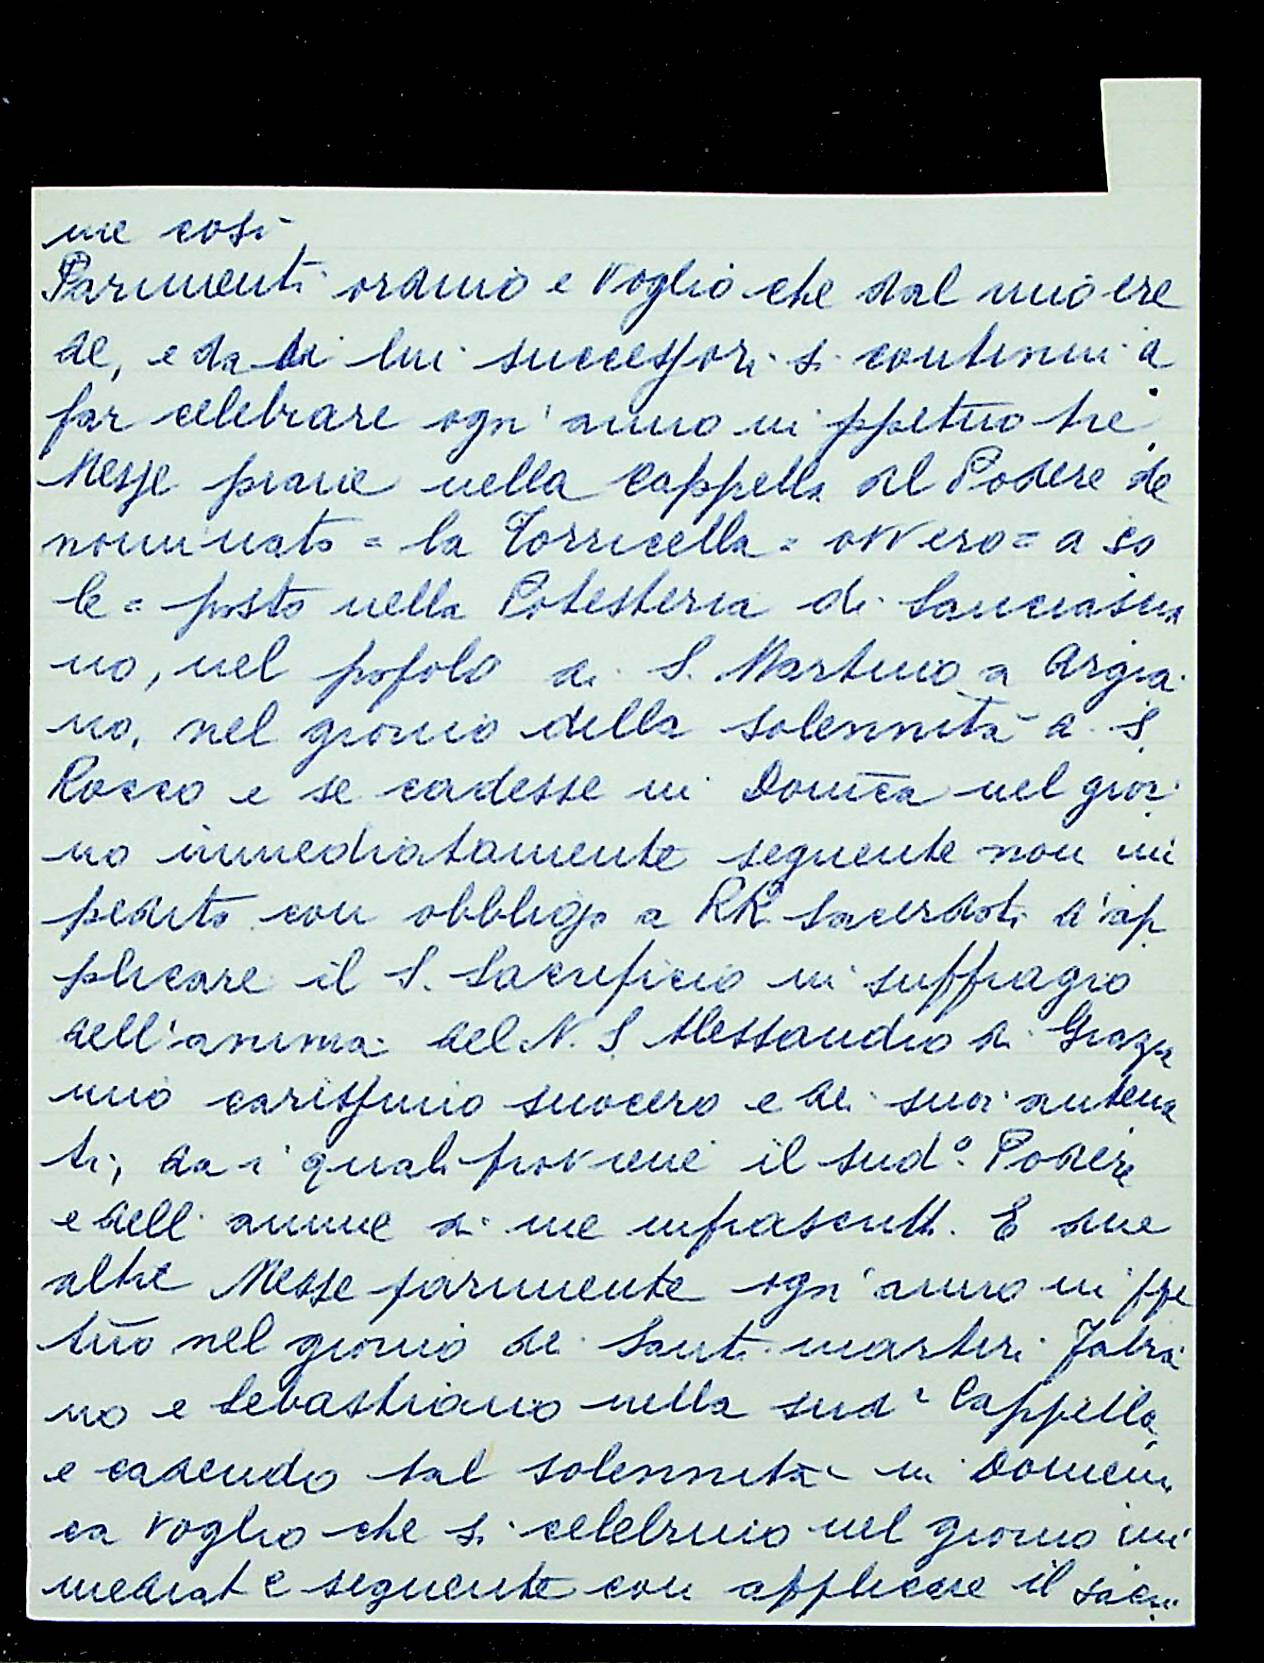 me così
Parimenti ordino e voglio che dal mio ere
de, e da di lui successori si continui a
far celebrare ogn'anno in ppetuo tre
Messe piane nella Cappella al Podere de
nominato = la Torricella = ovvero = a so
le = posto nella Potesteria di Sancascia
no, nel popolo di S. Martino a Argia
no, nel giorno della solennità a S.
Rocco e se cadesse in Domca nel gior
no immediatamente seguente non im
pedito con obbligo a RR Sacerdoti d'ap
plicare il S. Sacrificio in suffragio
dell'anima del N. S. Alessandro di Grazia
mio carissimo suocero e dei suoi antena
ti, da i quali proviene il sudº. Podere
e dell anime di me infrascritt. E due
altre Messe parimente ogn'anno in ppe
tuo nel giorno de Santi martiri Fabia
no e Sebastiano nella sudª Cappella,
e cadendo tal solennità in Domeni
ca voglio che si celebrino nel giorno im
mediat e seguente con applicare il sacri